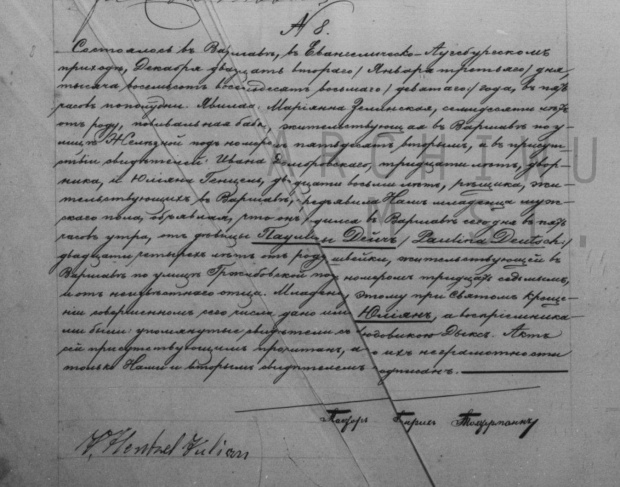 № 8.
Состоялось въ Варшавѣ, въ Евангелическо-Аугсбургскомъ
приходѣ, Декабря двадцать втораго / Января третьяго / дня,
тысяча восемьсотъ восемьдесятъ восьмаго / девятаго / года, въ
часовъ пополудни. Явилась Маріянна Зелинская, семидесяти лѣтъ
отъ роду, повивальная баба, жительствующая въ Варшавѣ по у-
лицѣ Желѣзной подъ номеромъ пятьдесятъ вторымъ, а въ присут-
ствіи свидѣтелей: Ивана тридцати лѣтъ, двор-
ника, и Юліяна Генцель, двадцати восьми лѣтъ, рѣщика, жи-
тельствующихъ въ Варшавѣ, предъявила Намъ младенца муж-
скаго пола, объявляя, что онъ родился въ Варшавѣ сего дня въ
часовъ утра, отъ дѣвицы Паулины Дейчъ / Paulina Deutsch /
двадцати четырехъ лѣтъ отъ роду швейки, жительствующей въ
Варшавѣ по улицѣ Гржибовской подъ номеромъ тридцать седьмымъ,
и отъ неизвѣстнаго отца. Младенцу этому при Святомъ Креще-
ніи совершенномъ сего числа дано имя Юліянъ, а воспріемника-
ми были: упомянутые свидѣтели съ Людовикою Дыксъ. Актъ
сей присутствующимъ прочитанъ, а по ихъ неграмотности
только Нами и вторымъ свидѣтелемъ подписанъ.
Пасторъ
J. Hentzel Julian